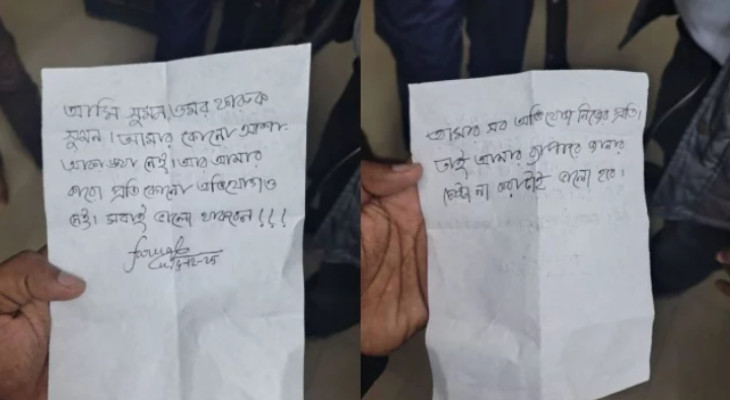 আমি সুমন, ওমর ফারুক
সুমন। আমার কোনো আশা-
আকাঙ্খা নেই। আর আমার
কারো প্রতি কোনো অভিযোগও
নেই। সবাই ভালো থাকবেন!!!
আমার সব অভিযোগ নিজের প্রতি।
তাই আমার ব্যাপারে জানার
চেষ্টা না করাটাই ভালো হবে।